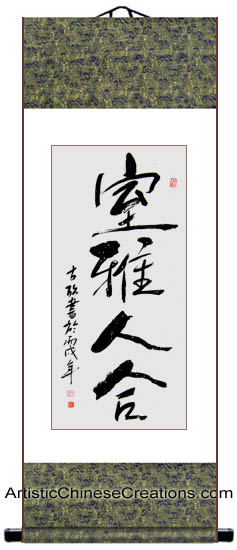 室雅人合
古書於丙戌年
ArtisticChineseCreations.com